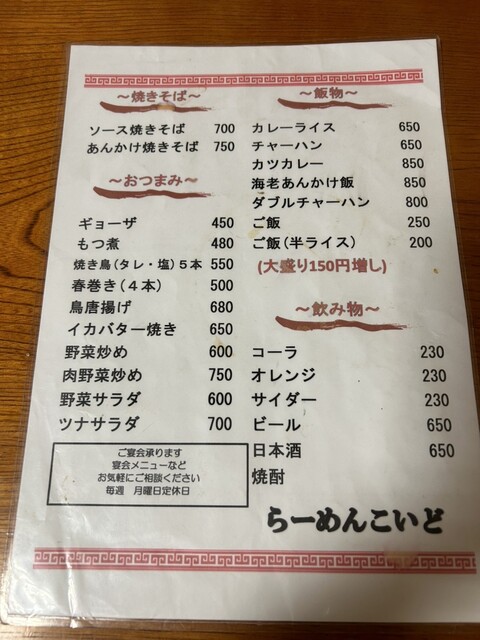 ～焼きそば～
ソース焼きそば 700
あんかけ焼きそば 750
～おつまみ～
ギョーザ 450
もつ煮 480
焼き鳥(タレ・塩)５本 550
春巻き(４本) 500
鳥唐揚げ 680
イカバター焼き 650
野菜炒め 600
肉野菜炒め 750
野菜サラダ 600
ツナサラダ 700
ご宴会承ります
宴会メニューなど
お気軽にご相談ください
毎週 月曜日定休日
～飯物～
カレーライス 650
チャーハン 650
カツカレー 850
海老あんかけ飯 850
ダブルチャーハン 800
ご飯 250
ご飯(半ライス) 200
(大盛り150円増し)
～飲み物～
コーラ 230
オレンジ 230
サイダー 230
ビール 650
日本酒 650
焼酎
らーめんこいど